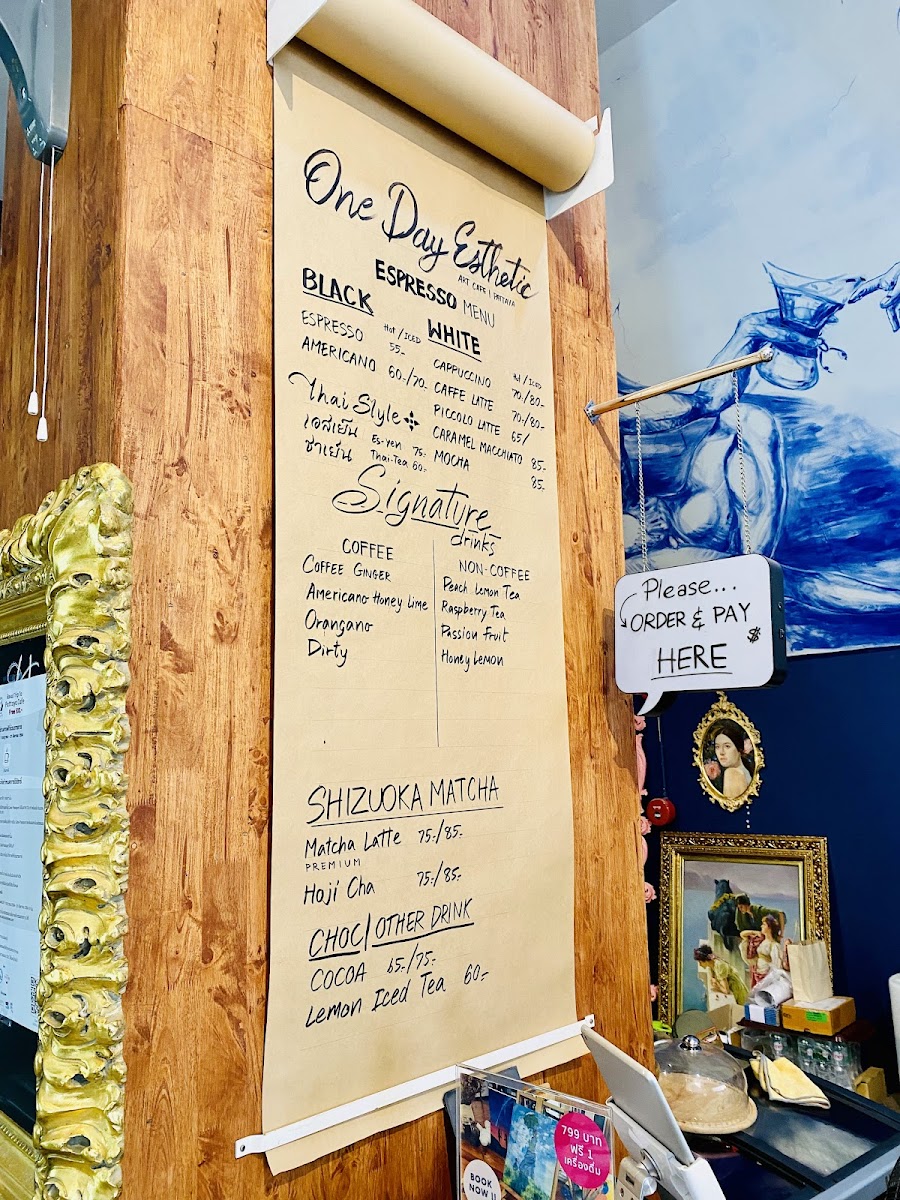 One Day Esthetic
ART CAFE | PATTAYA
ESPRESSO MENU
BLACK
Hot / ICED
ESPRESSO 55.-
AMERICANO 60.-/70.-
WHITE
Hot / ICED
CAPPUCCINO 70./80.-
CAFFE LATTE 70./80.-
PICCOLO LATTE 65/
CARAMEL MACCHIATO 85.-
MOCHA 85.-
Thai Style
เอสเย็น Es-yen 75.-
ชาเย็น Thai-Tea 60.-
Signature
drinks
COFFEE
COFFEE GINGER
Americano Honey Lime
Orangano
Dirty
NON-COFFEE
Peach Lemon Tea
Raspberry Tea
Passion Fruit
Honey Lemon
SHIZUOKA MATCHA
Matcha Latte 75.-/85.-
PREMIUM
Hoji Cha 75.-/85.-
CHOC/OTHER DRINK
COCOA 65.-/75.-
Lemon Iced Tea 60.-
Please...
ORDER & PAY
HERE $
799 บาท
ฟรี 1
เครื่องดื่ม
BOOK
NOW !!